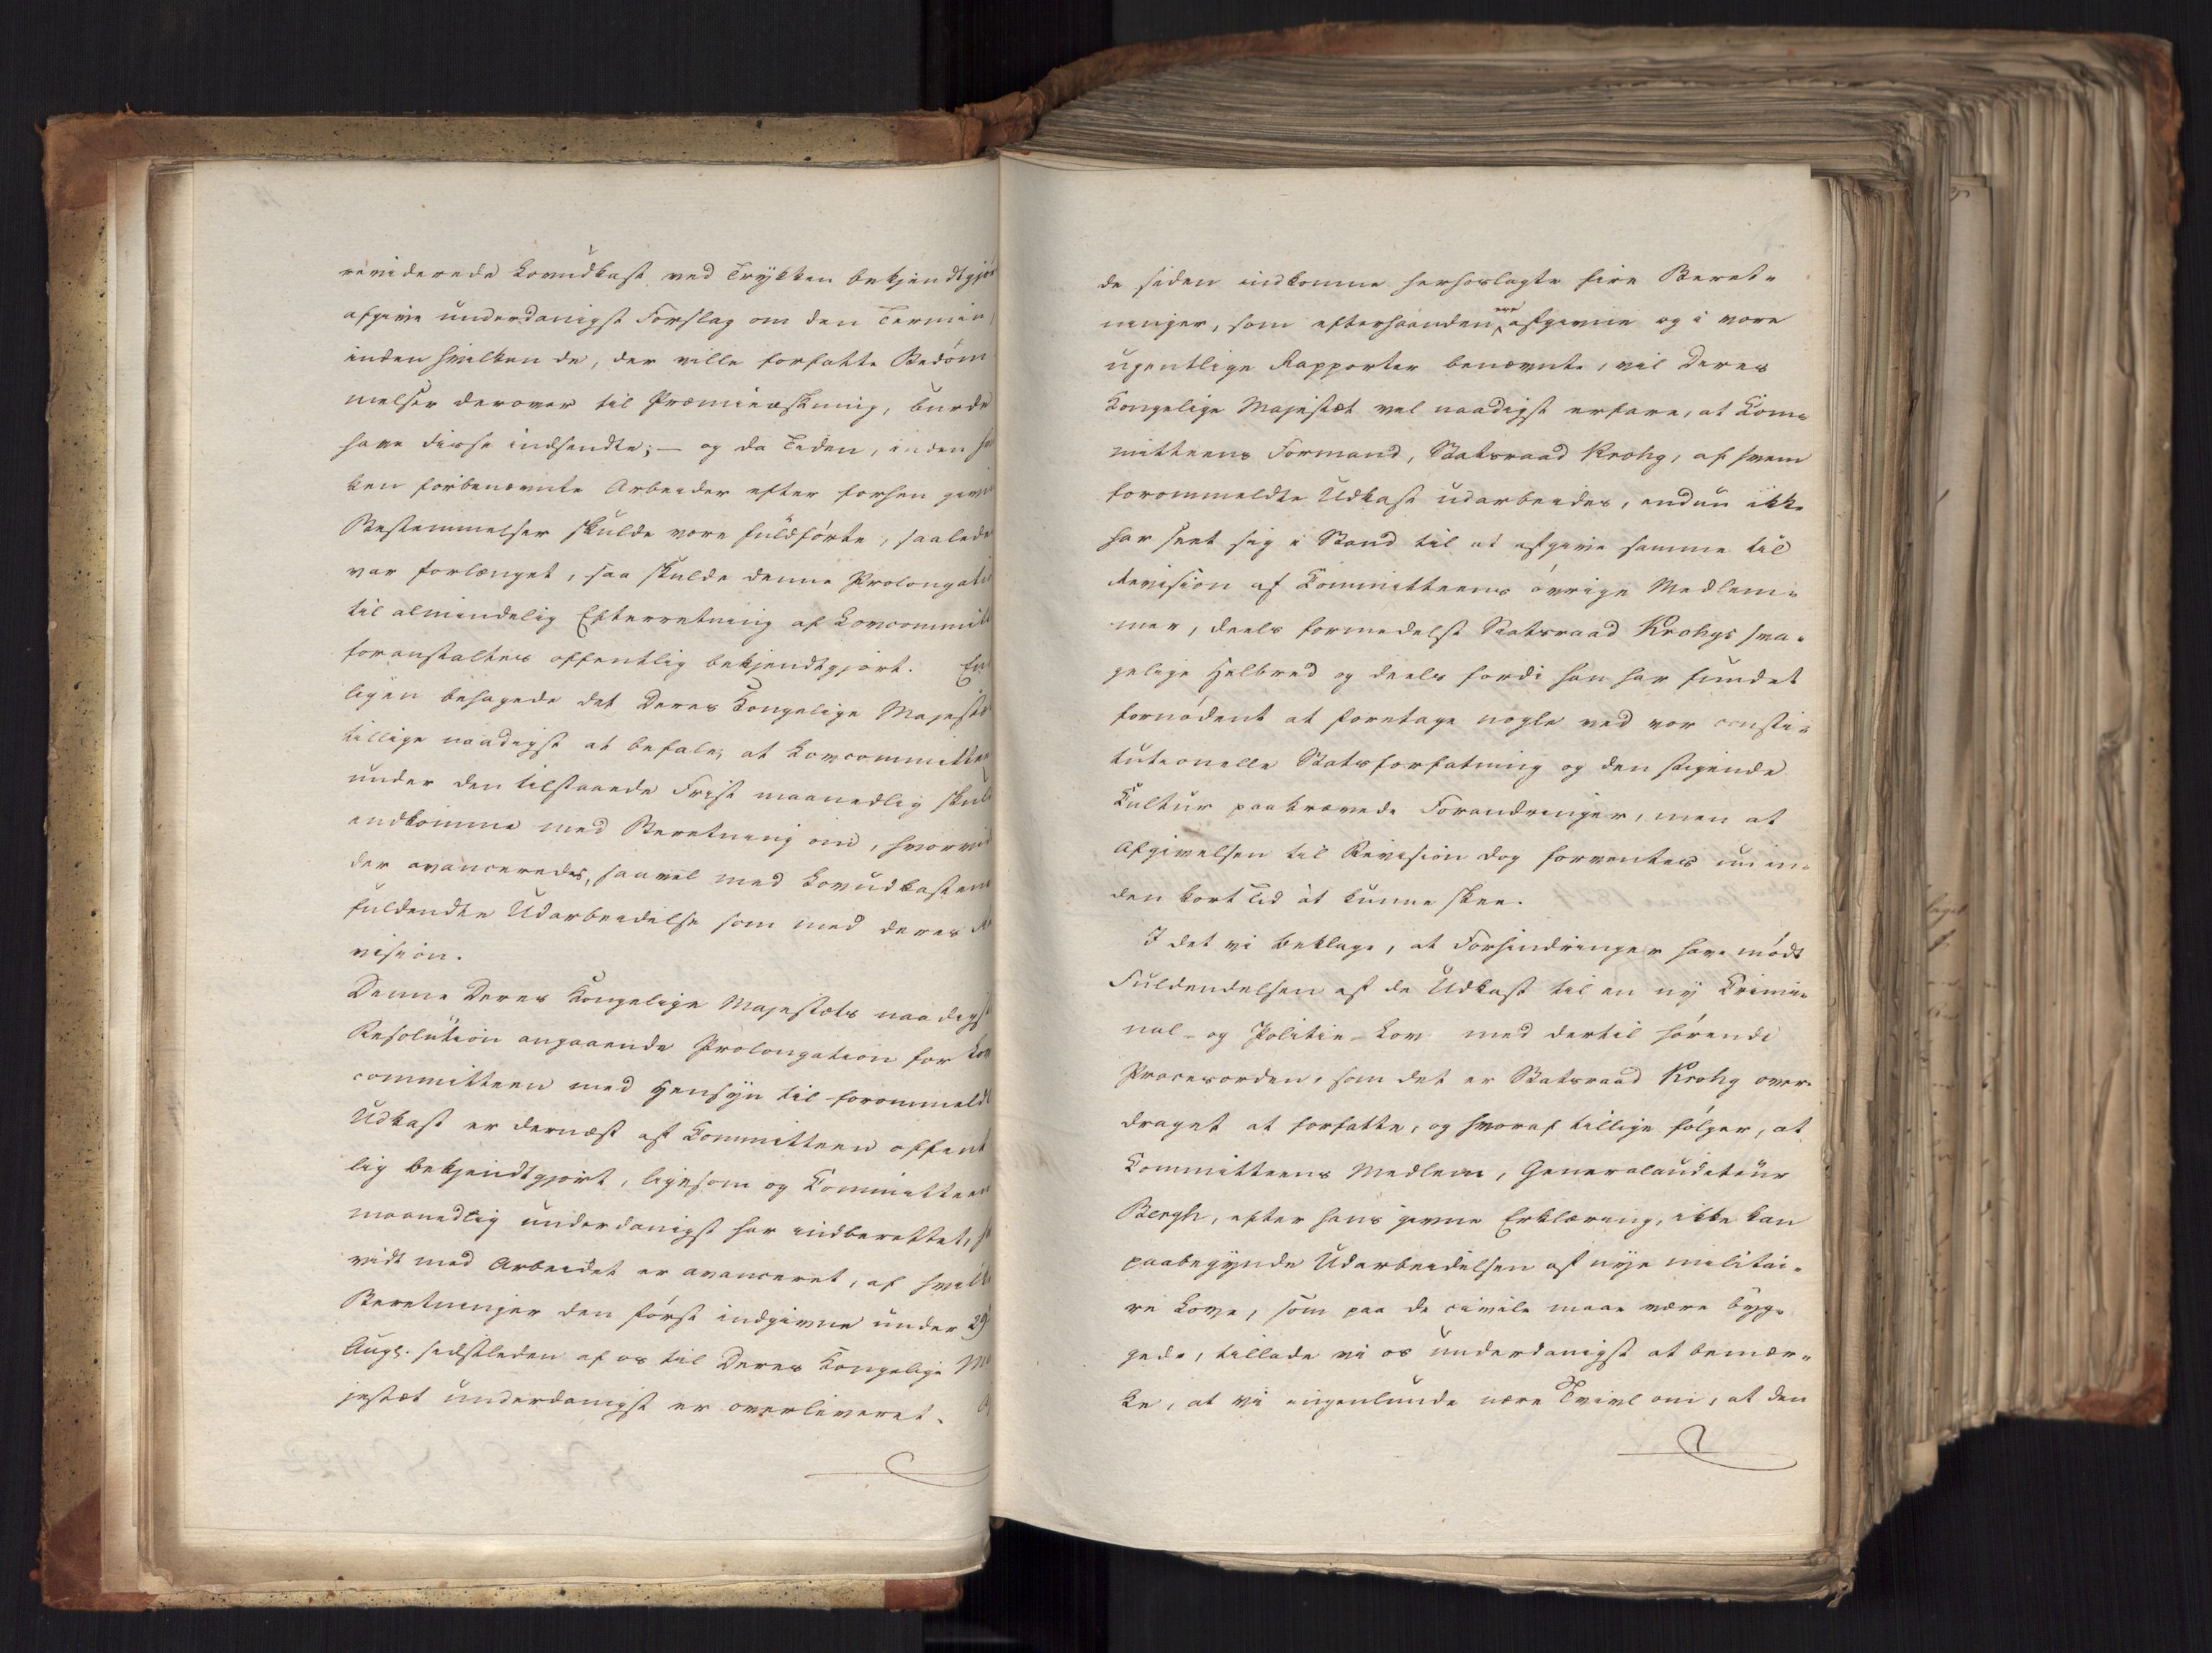 reviderede Lovudkast ved Trykken bekjendtgjør
afgive underdanigst Forslag om den Termin,
inden hvilken de, der ville forfatte Bedöm
melser derover til Præmieæskning, burde
have disse indsendte; — og da Tiden, inden
ken forbenævnte Arbeider efter forhen givne
Bestemmelser skulde være fuldförte, saaledes
var forlænget, saa skulde denne Prolongati
til almindelig Efterretning af Lovcommitt
foranstaltes offentlig bekjendtgjort. End
ligen behagede det Deres Kongelige Majestæt
tillige naadigst at befale, at Lovcommitteen
under den tilstaaede Frist maanedlig skuld
indkomme med Beretning om, hvorvidt
der avanceredes, saavel med Lovudkastenes
fuldendte Udarbeidelse som med deres Re
vision.
Denne Deres Kongelige Majestæts naadigst
Resolution angaaende Prolongation for Lov
committeen med Hensyn til forommeldte
Udkast er dernæst af Committeen offent
lig bekjendtgjort, ligesom og Committeen
maanedlig underdanigst har indberettet, h
vidt med Arbeidet er avanceret, af hvilke
Beretninger den först indgivne under 29
Augs. sidstleden af os til Deres Kongelige Ma
jestæt underdanigst er overleveret.
de siden indkomne herhoslagte fire Beret-
ninger, som efterhaanden ere afgivne og i vore
ugentlige Rapporter benævnte, vil Deres
Kongelige Majestæt vel naadigst erfare, at Com-
mitteens Formand, Statsraad Krohg, af hvem
forommeldte Udkast udarbeides, endnu ikke
har seet sig i Stand til at afgive samme til
Revision af Committeens övrige Medlem-
mer, deels formedelst Statsraad Krohgs sva-
gelige Helbred og deels fordi han har fundet
fornödent at foretage nogle ved vor consti-
tutionelle Statsforfatning og den stigende
Cultur paakrævede Forandringer, men at
Afgivelsen til Revision dog forventes nu in-
den kort Tid at kunne skee.
I det vi beklage, at Forhindringer have mödt
Fuldendelsen af de Udkast til en ny Crimi-
nal- og Politie-Lov med dertil hörende
Procesorden, som det er Statsraad Krohg over-
draget at forfatte, og hvoraf tillige fölger, at
Committeens Medlem, Generalauditeur
Bergh, efter hans givne Erklæring, ikke kan
paabegynde Udarbeidelsen af nye militai-
re Love, som paa de civile maae være byg-
gede, tillade vi os underdanigst at bemær-
ke, at vi ingenlunde nære Tvivl om, at den